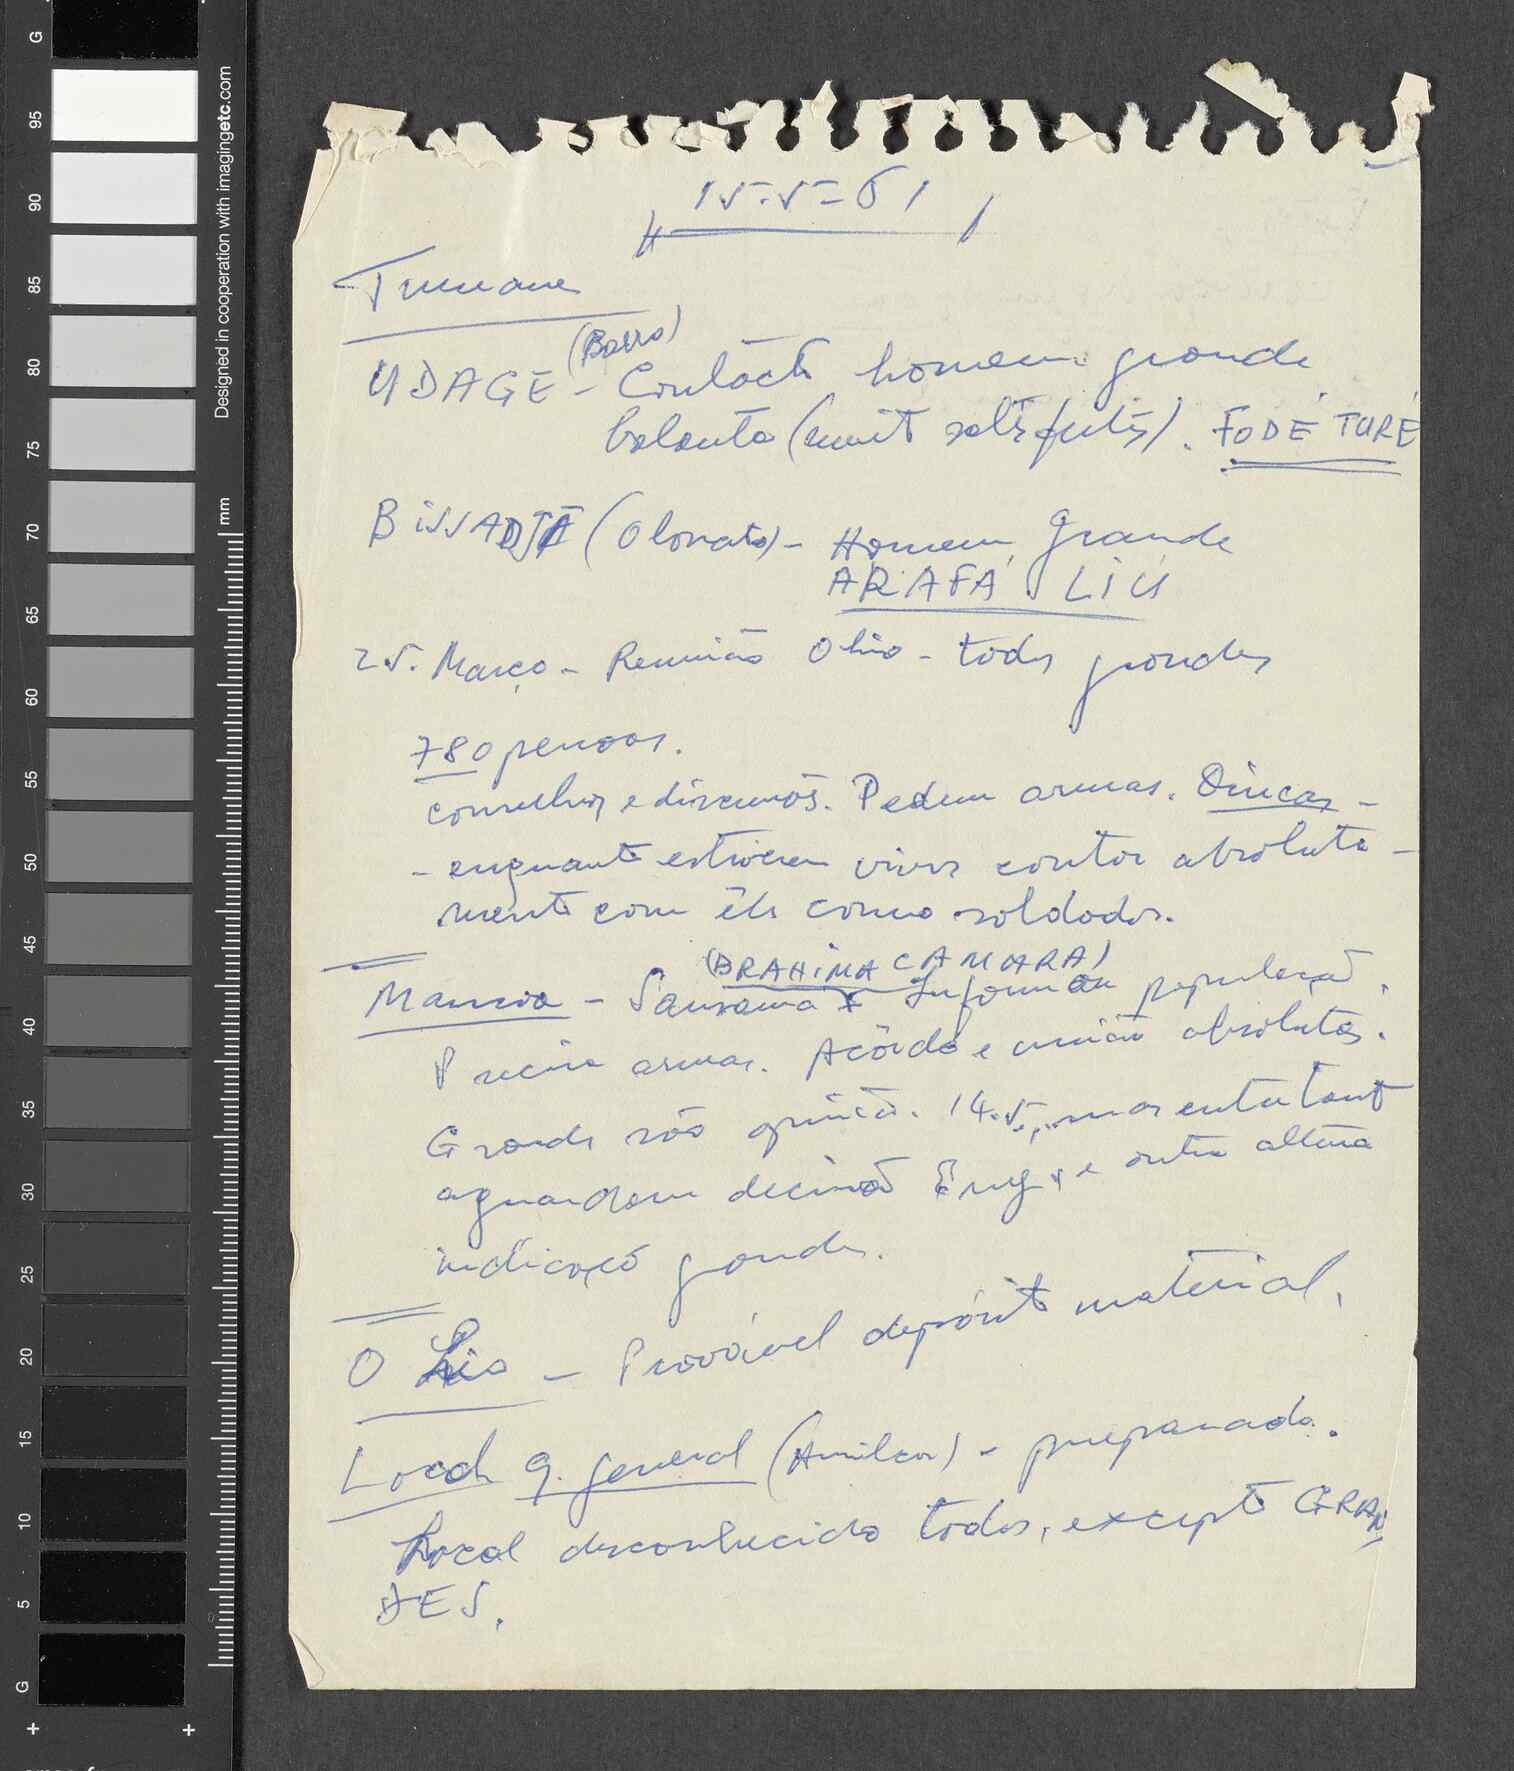 15-5-61
UDAGE (Barro) - Contacto homem grande
balanta (muito satisfeitos). FODÉ TURÉ
BissADJÁ (Olonato) - Homem Grande
ARAFA LIÚ
25. Março - Reunião Olio - todos grandes
780 pessoas.
conselhos e discursos. Pedem armas.
- enquanto estiverem vivos contar absoluta-
mente com êles como soldados.
(BRAHIMA CAMARA)
Mansoa - Informou população.
Precisa armas. Acôrdo e união absolutas.
Grandes são opinião. 14.5, mas entretanto
aguardam decisão Eng. e outra altura
indicação grandes.
O Lio - Provável depósito material.
Local q. general (Amilcar) - preparado.
Local desconhecido todos, excepto GRAN
DES.
Designed in cooperation with imagingetc.com
mm
G
95
90
85
80
75
70
65
60
55
50
45
40
35
30
25
20
15
10
5
G